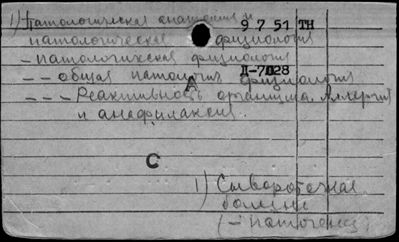 1) Патологическая анатомия и 9 7 51 ТН
патологическая физиология
– патологическая физиология
– – общая патология Д-7028
физиология
А
– – – Реактивность организма. Аллергия
и анафилаксия.
С
1) Сывороточная
болезнь
(– патогенез)